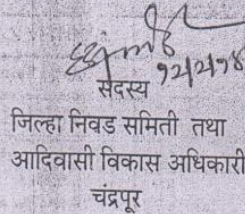 १२/२/१४
सदस्य
जिल्हा निवड समिती तथा
आदिवासी विकास अधिकारी
चंद्रपूर